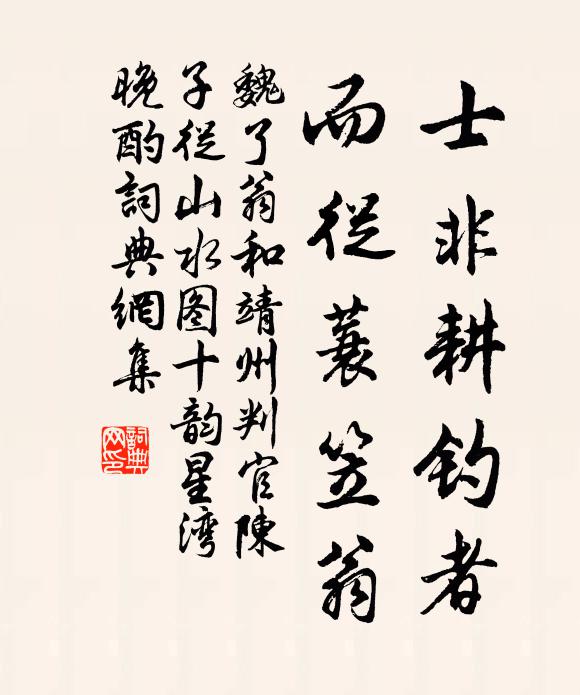 士非耕钓者
而從蓑笠翁
魏了翁和靖州判官陳
子從山水图十韵星湾
晚酌詞典網集
詞典
网印